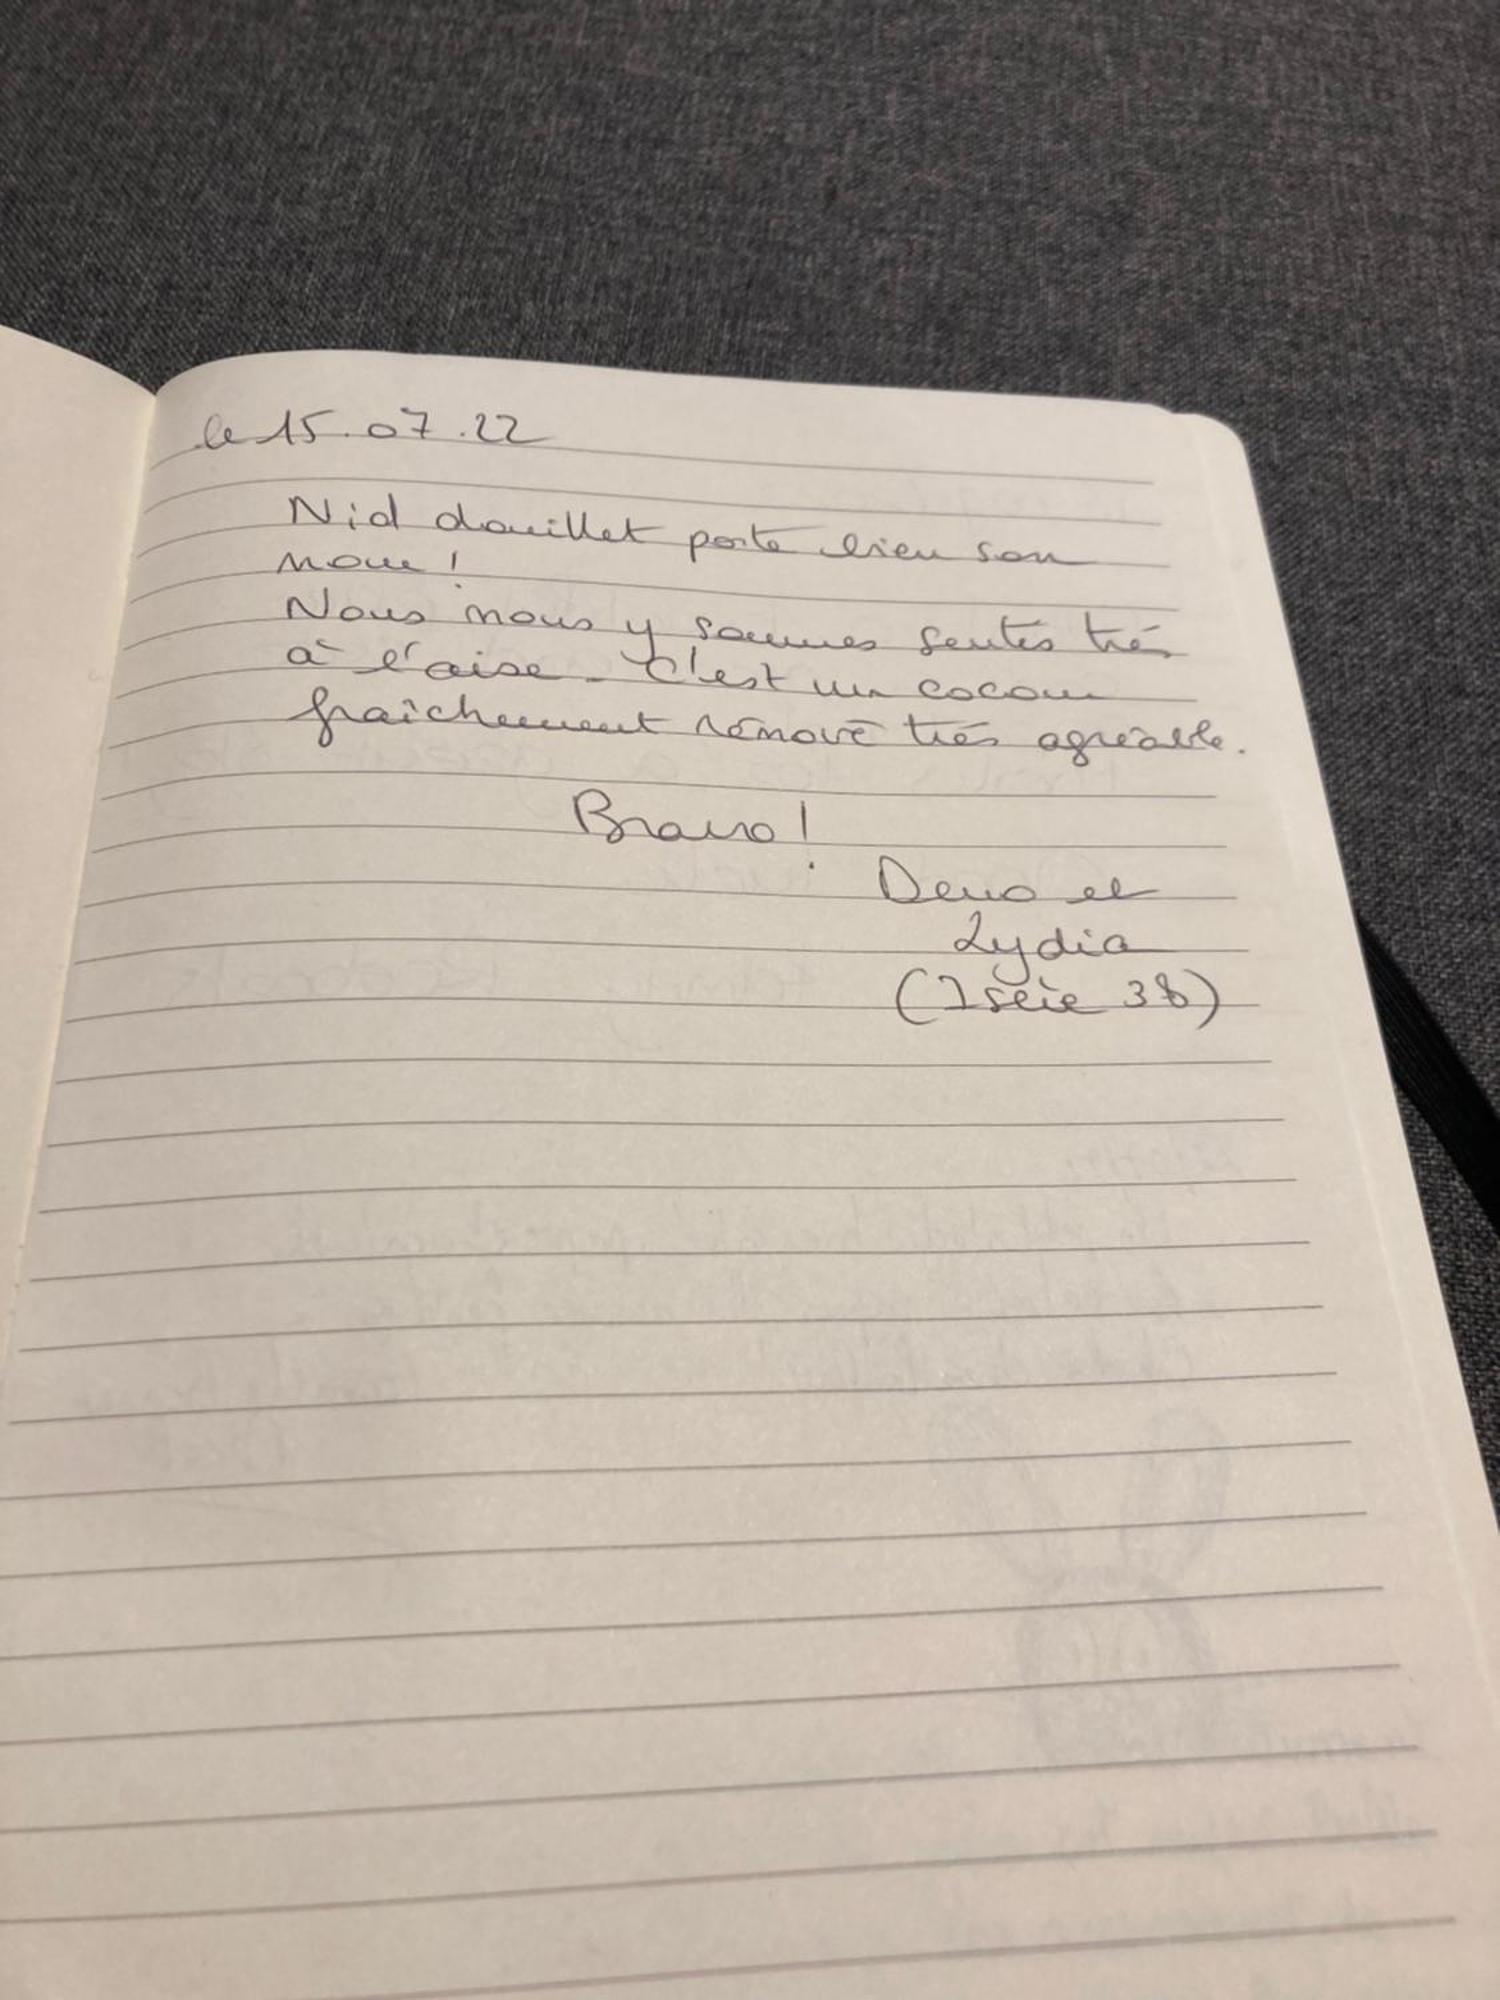 le 15.07.22
Nid douillet porte bien son
nom !
Nous nous y sommes sentis très
à l'aise. C'est un cocon
fraîchement rénové très agréable.
Bravo !
et
Lydia
(Isère 38)